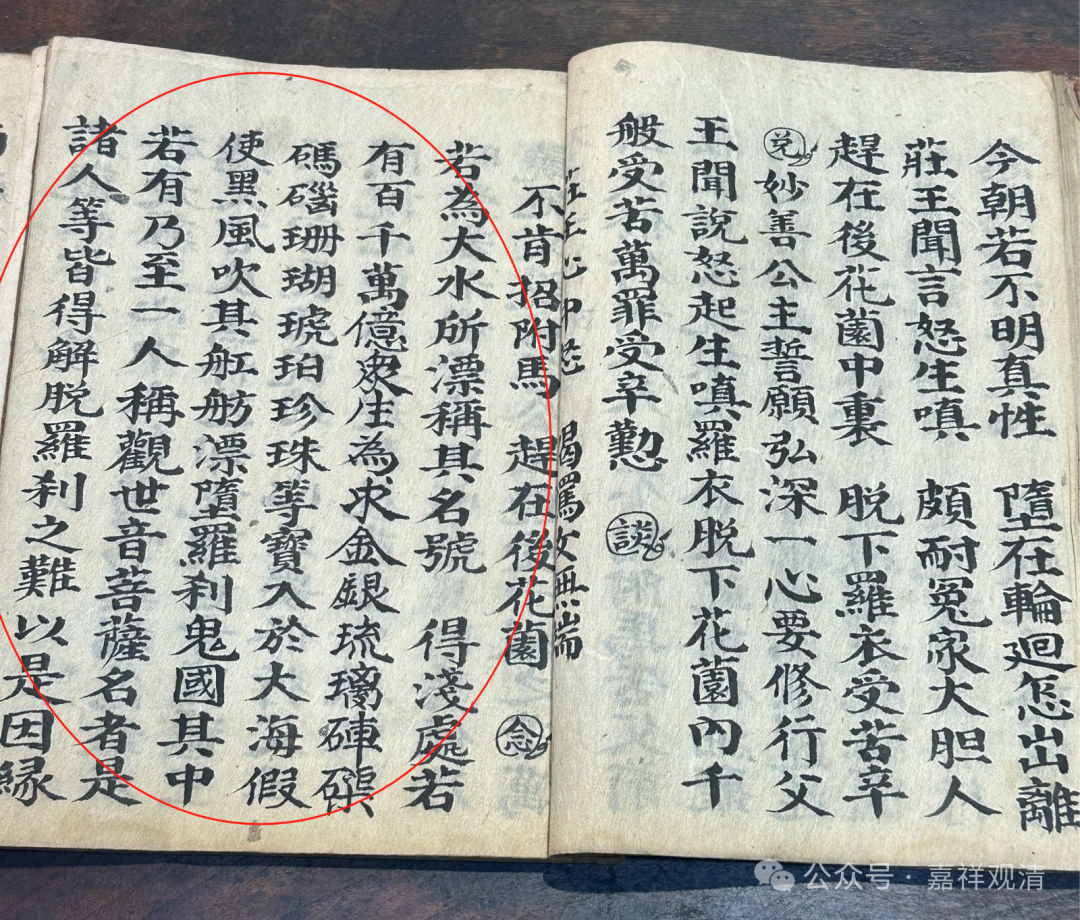 今朝若不明真性　墮在輪迴怎出離
莊王聞言怒生嗔　頗耐冤家大胆人
趕在後花薗中裏　脱下羅衣受苦辛
兑 妙善公主誓願弘深一心要修行父
王聞說怒起生嗔羅衣脱下花薗內千
般受苦萬罪受辛勤 談
莊王心中怒　喝罵女無端
不肯招附馬　趕在後花薗 念
若為大水所漂稱其名號　得淺處若
有百千萬億衆生為求金銀琉璃硨磲
碼碯珊瑚琥珀珍珠等寶入於大海假
使黑風吹其舡舫漂墮羅刹鬼國其中
若有乃至一人稱觀世音菩薩名者是
諸人等皆得解脱羅刹之難以是因緣
公众号·嘉祥观清